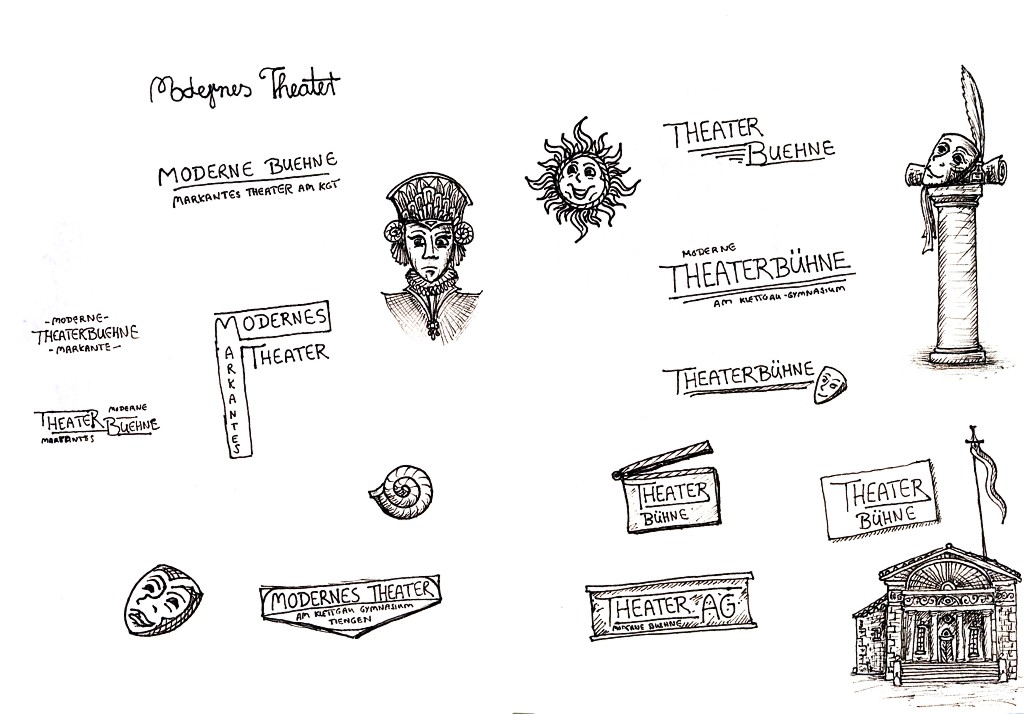 Modernes Theater
MODERNE BUEHNE
MARKANTES THEATER AM KGT
THEATER
BUEHNE
MODERNE
THEATERBÜHNE
AM KLETTGAU-GYMNASIUM
-MODERNE-
THEATERBUEHNE
-MARKANTE-
MODERNES
THEATER
MARKANTES
THEATERBÜHNE
MODERNE
THEATER BUEHNE
MARKANTES
THEATER
BÜHNE
THEATER
BÜHNE
MODERNES THEATER
AM KLETTGAU GYMNASIUM
TIENGEN
THEATER-AG
BUEHNE